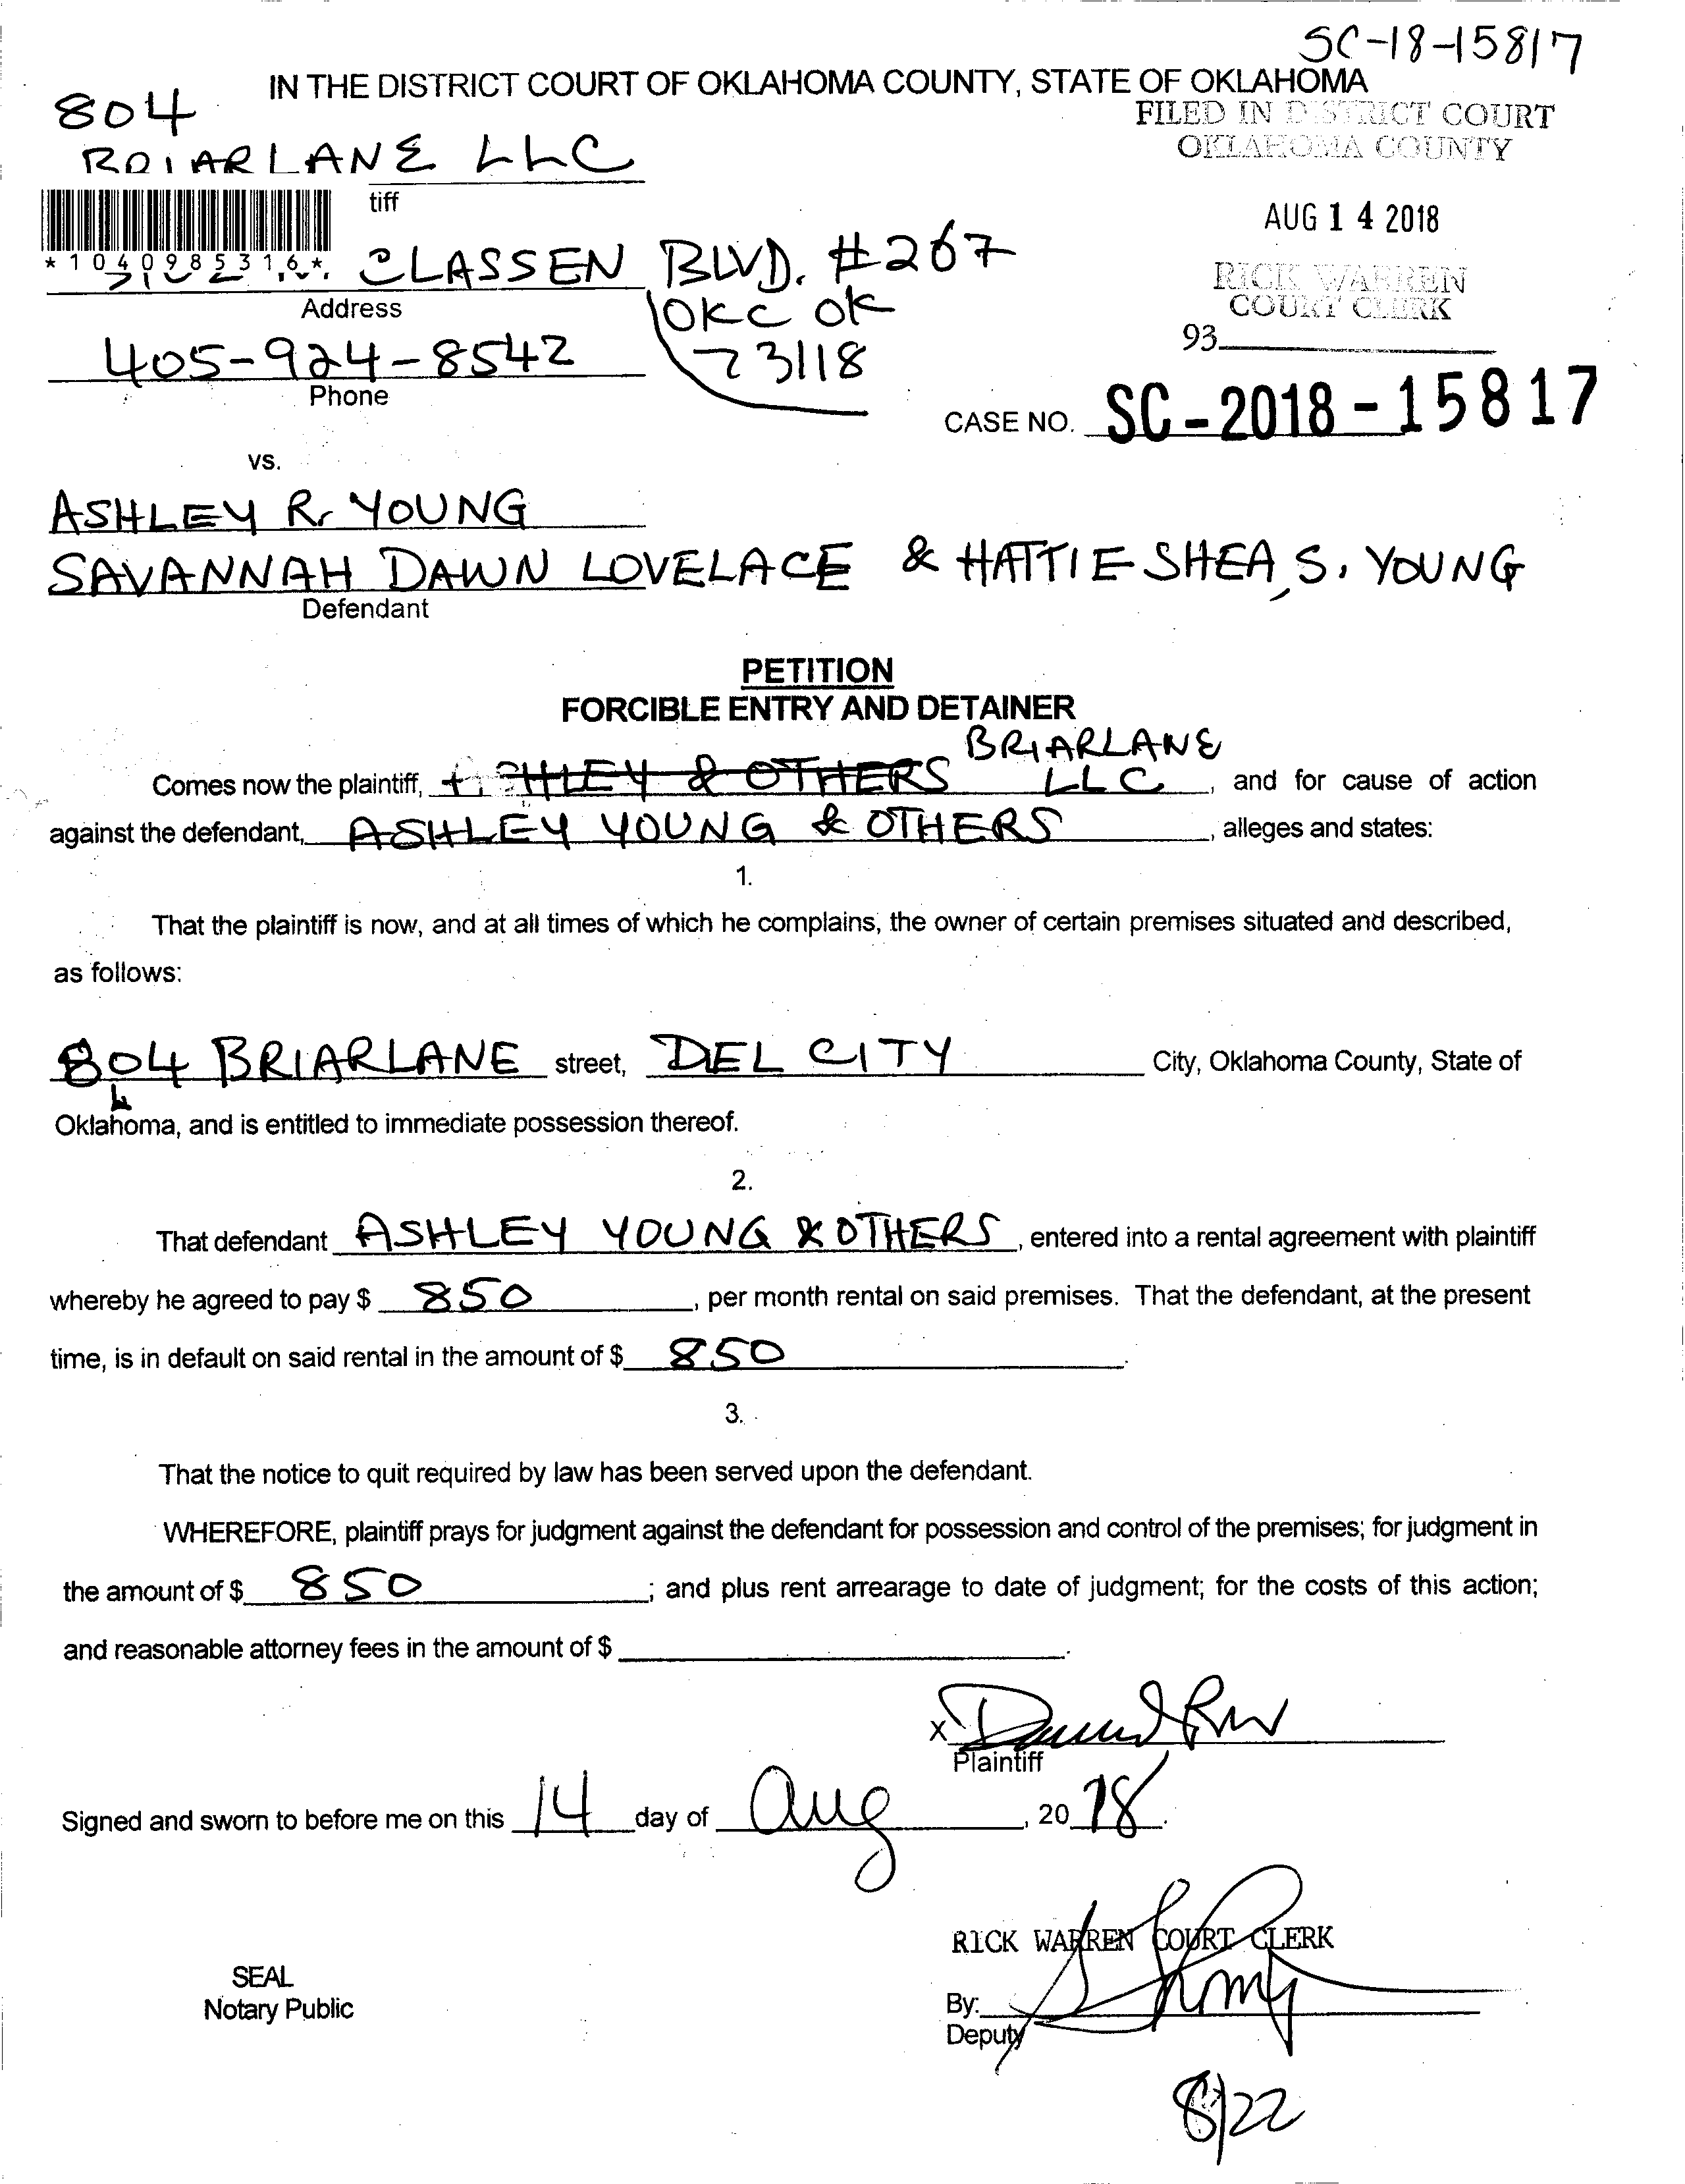 SC-18-15817
IN THE DISTRICT COURT OF OKLAHOMA COUNTY, STATE OF OKLAHOMA
804
FILED IN DISTRICT COURT
OKLAHOMA COUNTY
BRIARLANE LLC
tiff
AUG 14 2018
*1040985316*
CLASSEN BLVD. #267
RICK WARREN
COURT CLERK
Address
OKC OK
93
405-924-8542
73118
Phone
CASE NO. SC-2018-15817
vs.
ASHLEY R. YOUNG
SAVANNAH DAWN LOVELACE & HATTIE SHEA S. YOUNG
Defendant
PETITION
FORCIBLE ENTRY AND DETAINER
BRIARLANE
Comes now the plaintiff, & OTHERS LLC, and for cause of action
against the defendant, ASHLEY YOUNG & OTHERS, alleges and states:
1.
That the plaintiff is now, and at all times of which he complains, the owner of certain premises situated and described,
as follows:
804 BRIARLANE street, DEL CITY City, Oklahoma County, State of
Oklahoma, and is entitled to immediate possession thereof.
2.
That defendant ASHLEY YOUNG & OTHERS, entered into a rental agreement with plaintiff
whereby he agreed to pay $ 850, per month rental on said premises. That the defendant, at the present
time, is in default on said rental in the amount of $ 850.
3.
That the notice to quit required by law has been served upon the defendant.
WHEREFORE, plaintiff prays for judgment against the defendant for possession and control of the premises; for judgment in
the amount of $ 850; and plus rent arrearage to date of judgment; for the costs of this action;
and reasonable attorney fees in the amount of $ .
X
Plaintiff
Signed and sworn to before me on this 14 day of Aug, 20 18.
RICK WARREN COURT CLERK
SEAL
Notary Public
By:
Deputy
8/22